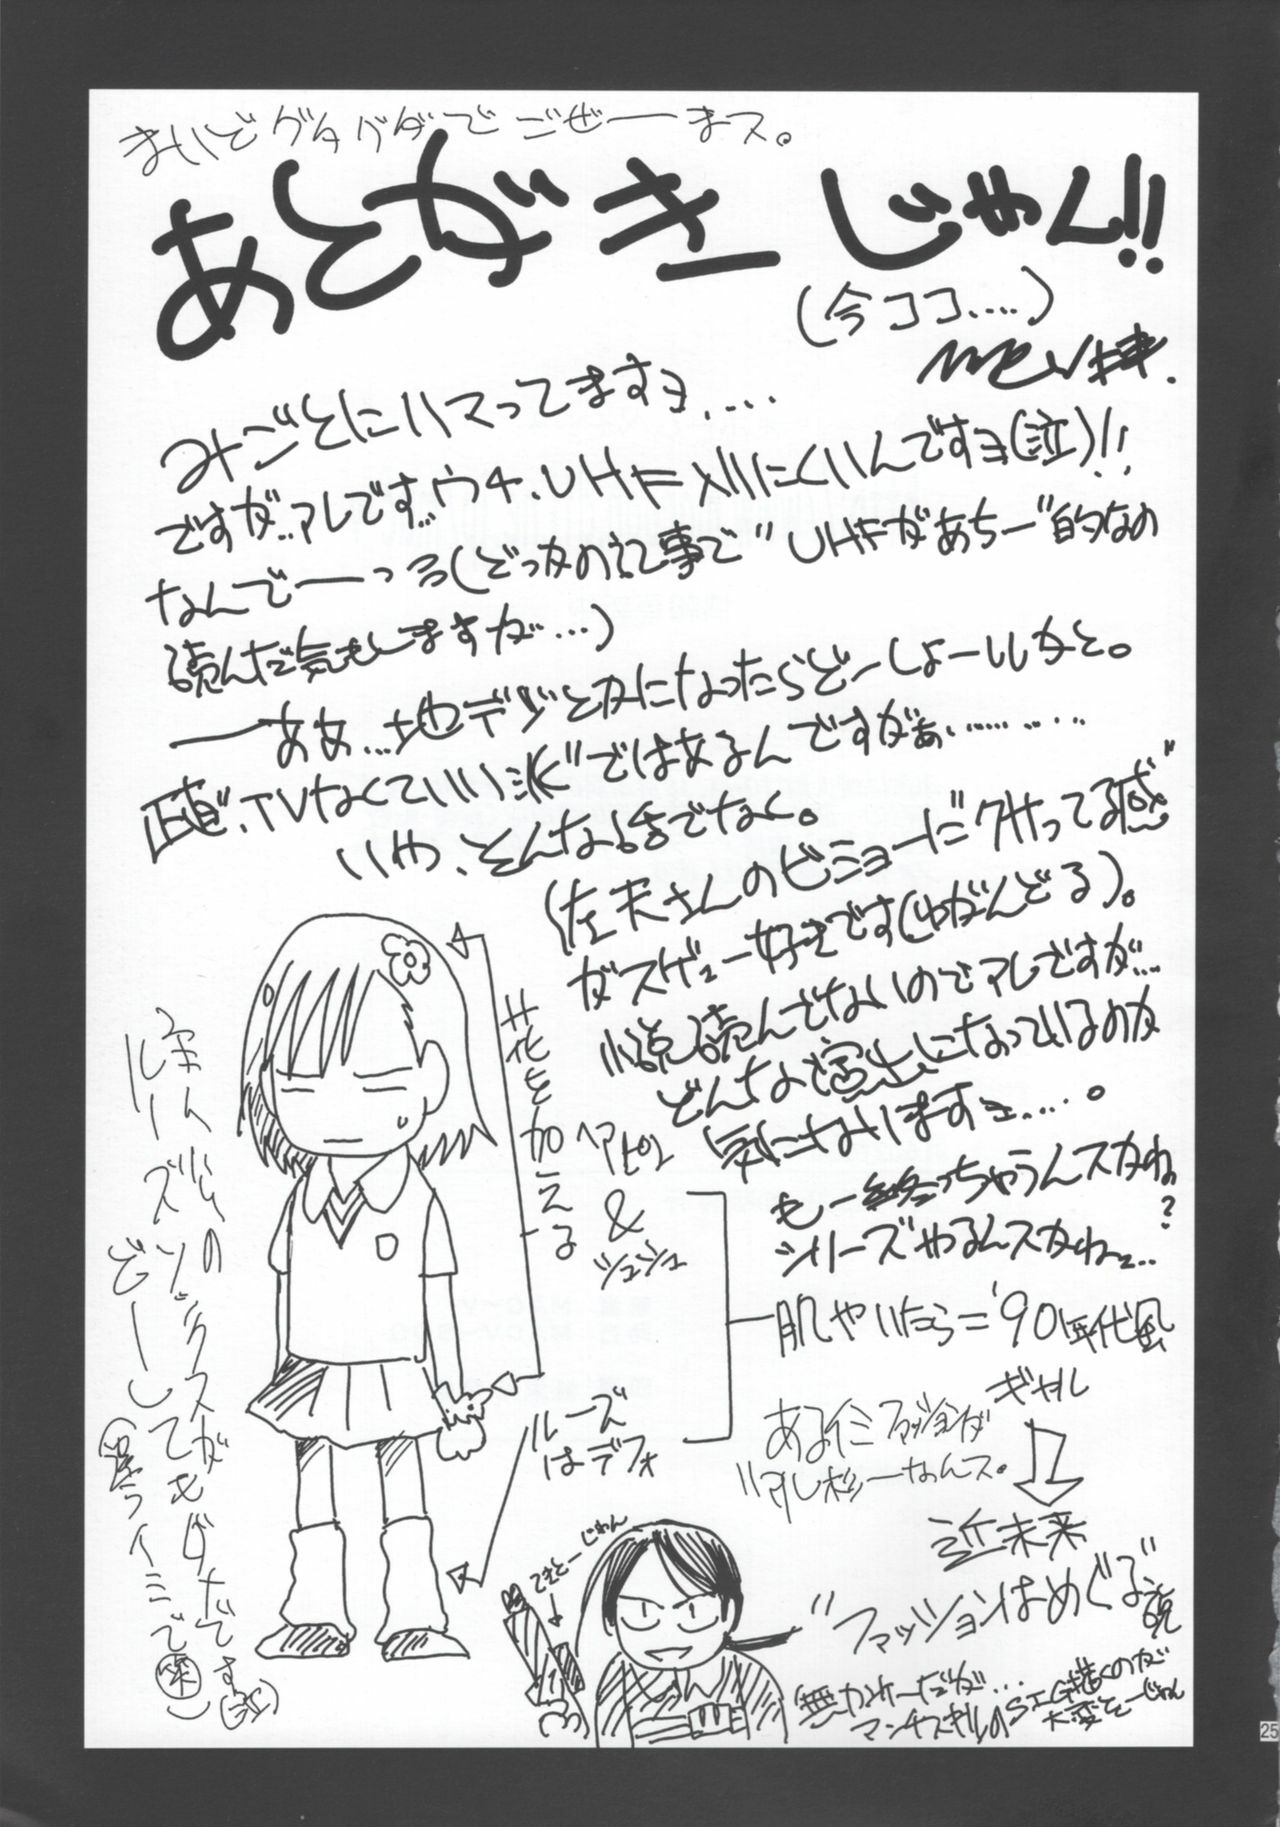 まいどグダグダでごぜーまス。
あとがきじゃん!!
(今ココ....)
みごとにハマってますヨ....
ですが..アレです..ウチ、UHF入りにくいんですヨ(泣)!!
なんでーーっろ(どっかの記事で"UHFがあちー"的なの
読んだ気もしますが...)
ーああ...地デジとかになったらどーしょーいかと。
正直、TVなくていい派"ではあるんですがぁ...........
いや、そんな話でなく。
(左天さんのビミョーにクサってる感"
がスゲェー好きです(ゆがんどる)。
小説読んでないのでアレですが...
どんな演出になっているのか
気になりますヨ.....。
もー終っちゃうんスかね?
シリーズやるんスかね...
花を加える
ヘアピン
&
シュシュ
ルーズ
はデフォ
肌やいたら='90年代風
ギャル
あるイミファッションが
ハルしおーなんス。
近未来
"ファッションはめぐる"説
無かんけーだが...
アンチスキルのSIG描くのが
大変そーじゃん
てきとーじゃん
ルーズソックスが
どーしてもダメです(泣)
(違うイミで(笑))
25